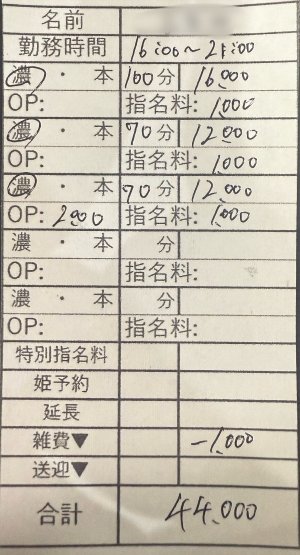 名前
勤務時間 16:00～21:00
濃・本 100分 16,000
OP: 指名料: 1,000
濃・本 70分 12,000
OP: 指名料: 1,000
濃・本 70分 12,000
OP: 2,000 指名料: 1,000
濃・本 分
OP: 指名料:
濃・本 分
OP: 指名料:
特別指名料
姫予約
延長
雑費▼ -1,000
送迎▼
合計 44,000